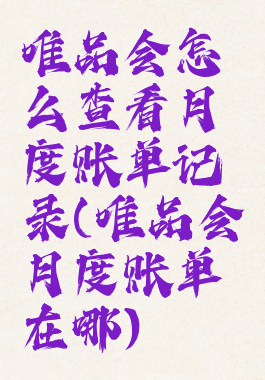 唯品会怎
么查看月
度账单记
录(唯品会
月度账单
在哪)